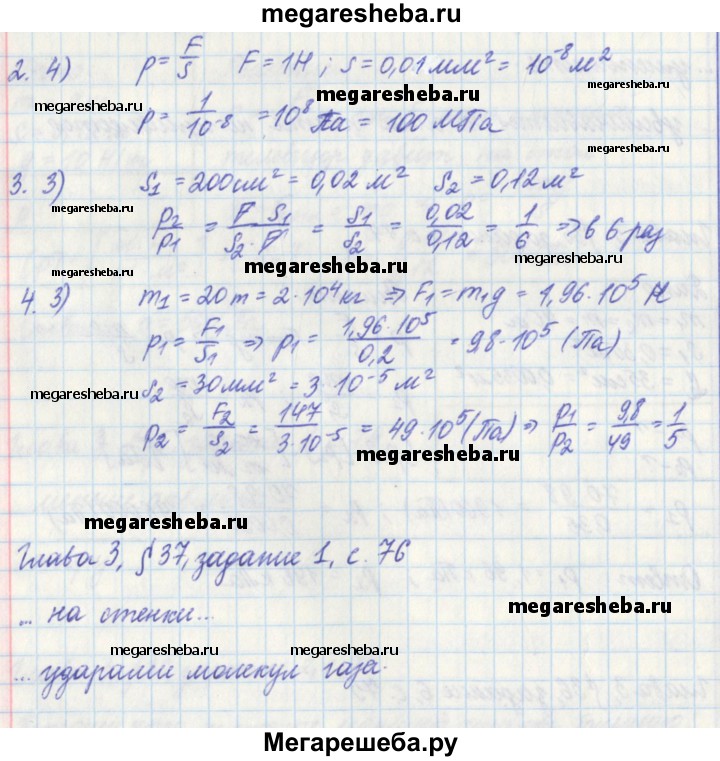 megaresheba.ru
2. 4) p = F/S F = 1Н; S = 0,01 мм² = 10⁻⁸ м²
megaresheba.ru
megaresheba.ru
p = 1/10⁻⁸ = 10⁸ Па = 100 МПа
megaresheba.ru
3. 3) S₁ = 200 см² = 0,02 м² S₂ = 0,12 м²
p₂/p₁ = F S₁/S₂·F = S₁/S₂ = 0,02/0,12 = 1/6 ⇒ в 6 раз
megaresheba.ru
4. 3) m₁ = 20 т = 2·10⁴ кг ⇒ F₁ = m₁g = 1,96·10⁵ Н
p₁ = F₁/S₁ ⇒ p₁ = 1,96·10⁵/0,2 = 98·10⁵ (Па)
megaresheba.ru
S₂ = 30 мм² = 3·10⁻⁵ м²
p₂ = F₂/S₂ = 147/3·10⁻⁵ = 49·10⁵ (Па) ⇒ p₁/p₂ = 9,8/49 = 1/5
megaresheba.ru
megaresheba.ru
Глава 3, §37, задание 1, с. 76
megaresheba.ru
... на стенки...
megaresheba.ru
megaresheba.ru
... ударами молекул газа.
megaresheba.ru
Мегарешеба.ру